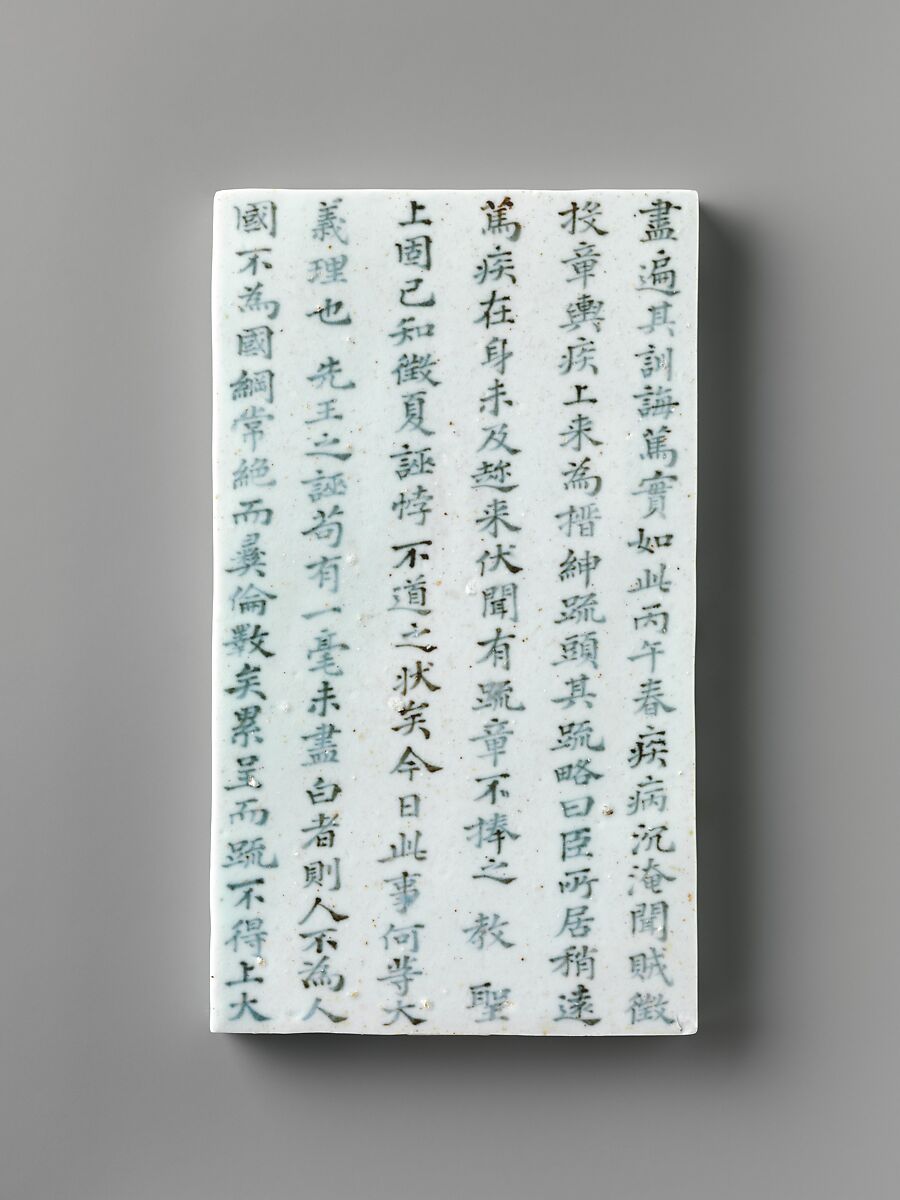 盡遍其訓誨篤實如此丙午春疾病沉淹聞賊徵
投章輿疾上来為搢紳䟽頭其䟽略曰臣所居稍遠
篤疾在身未及趂来伏聞有䟽章不捧之 教 聖
上固已知徵夏誣悖不道之状矣今日此事何等大
義理也 先王之誣苟有一毫未盡白者則人不為人
國不為國綱常絶而彛倫斁矣累呈而䟽不得上大